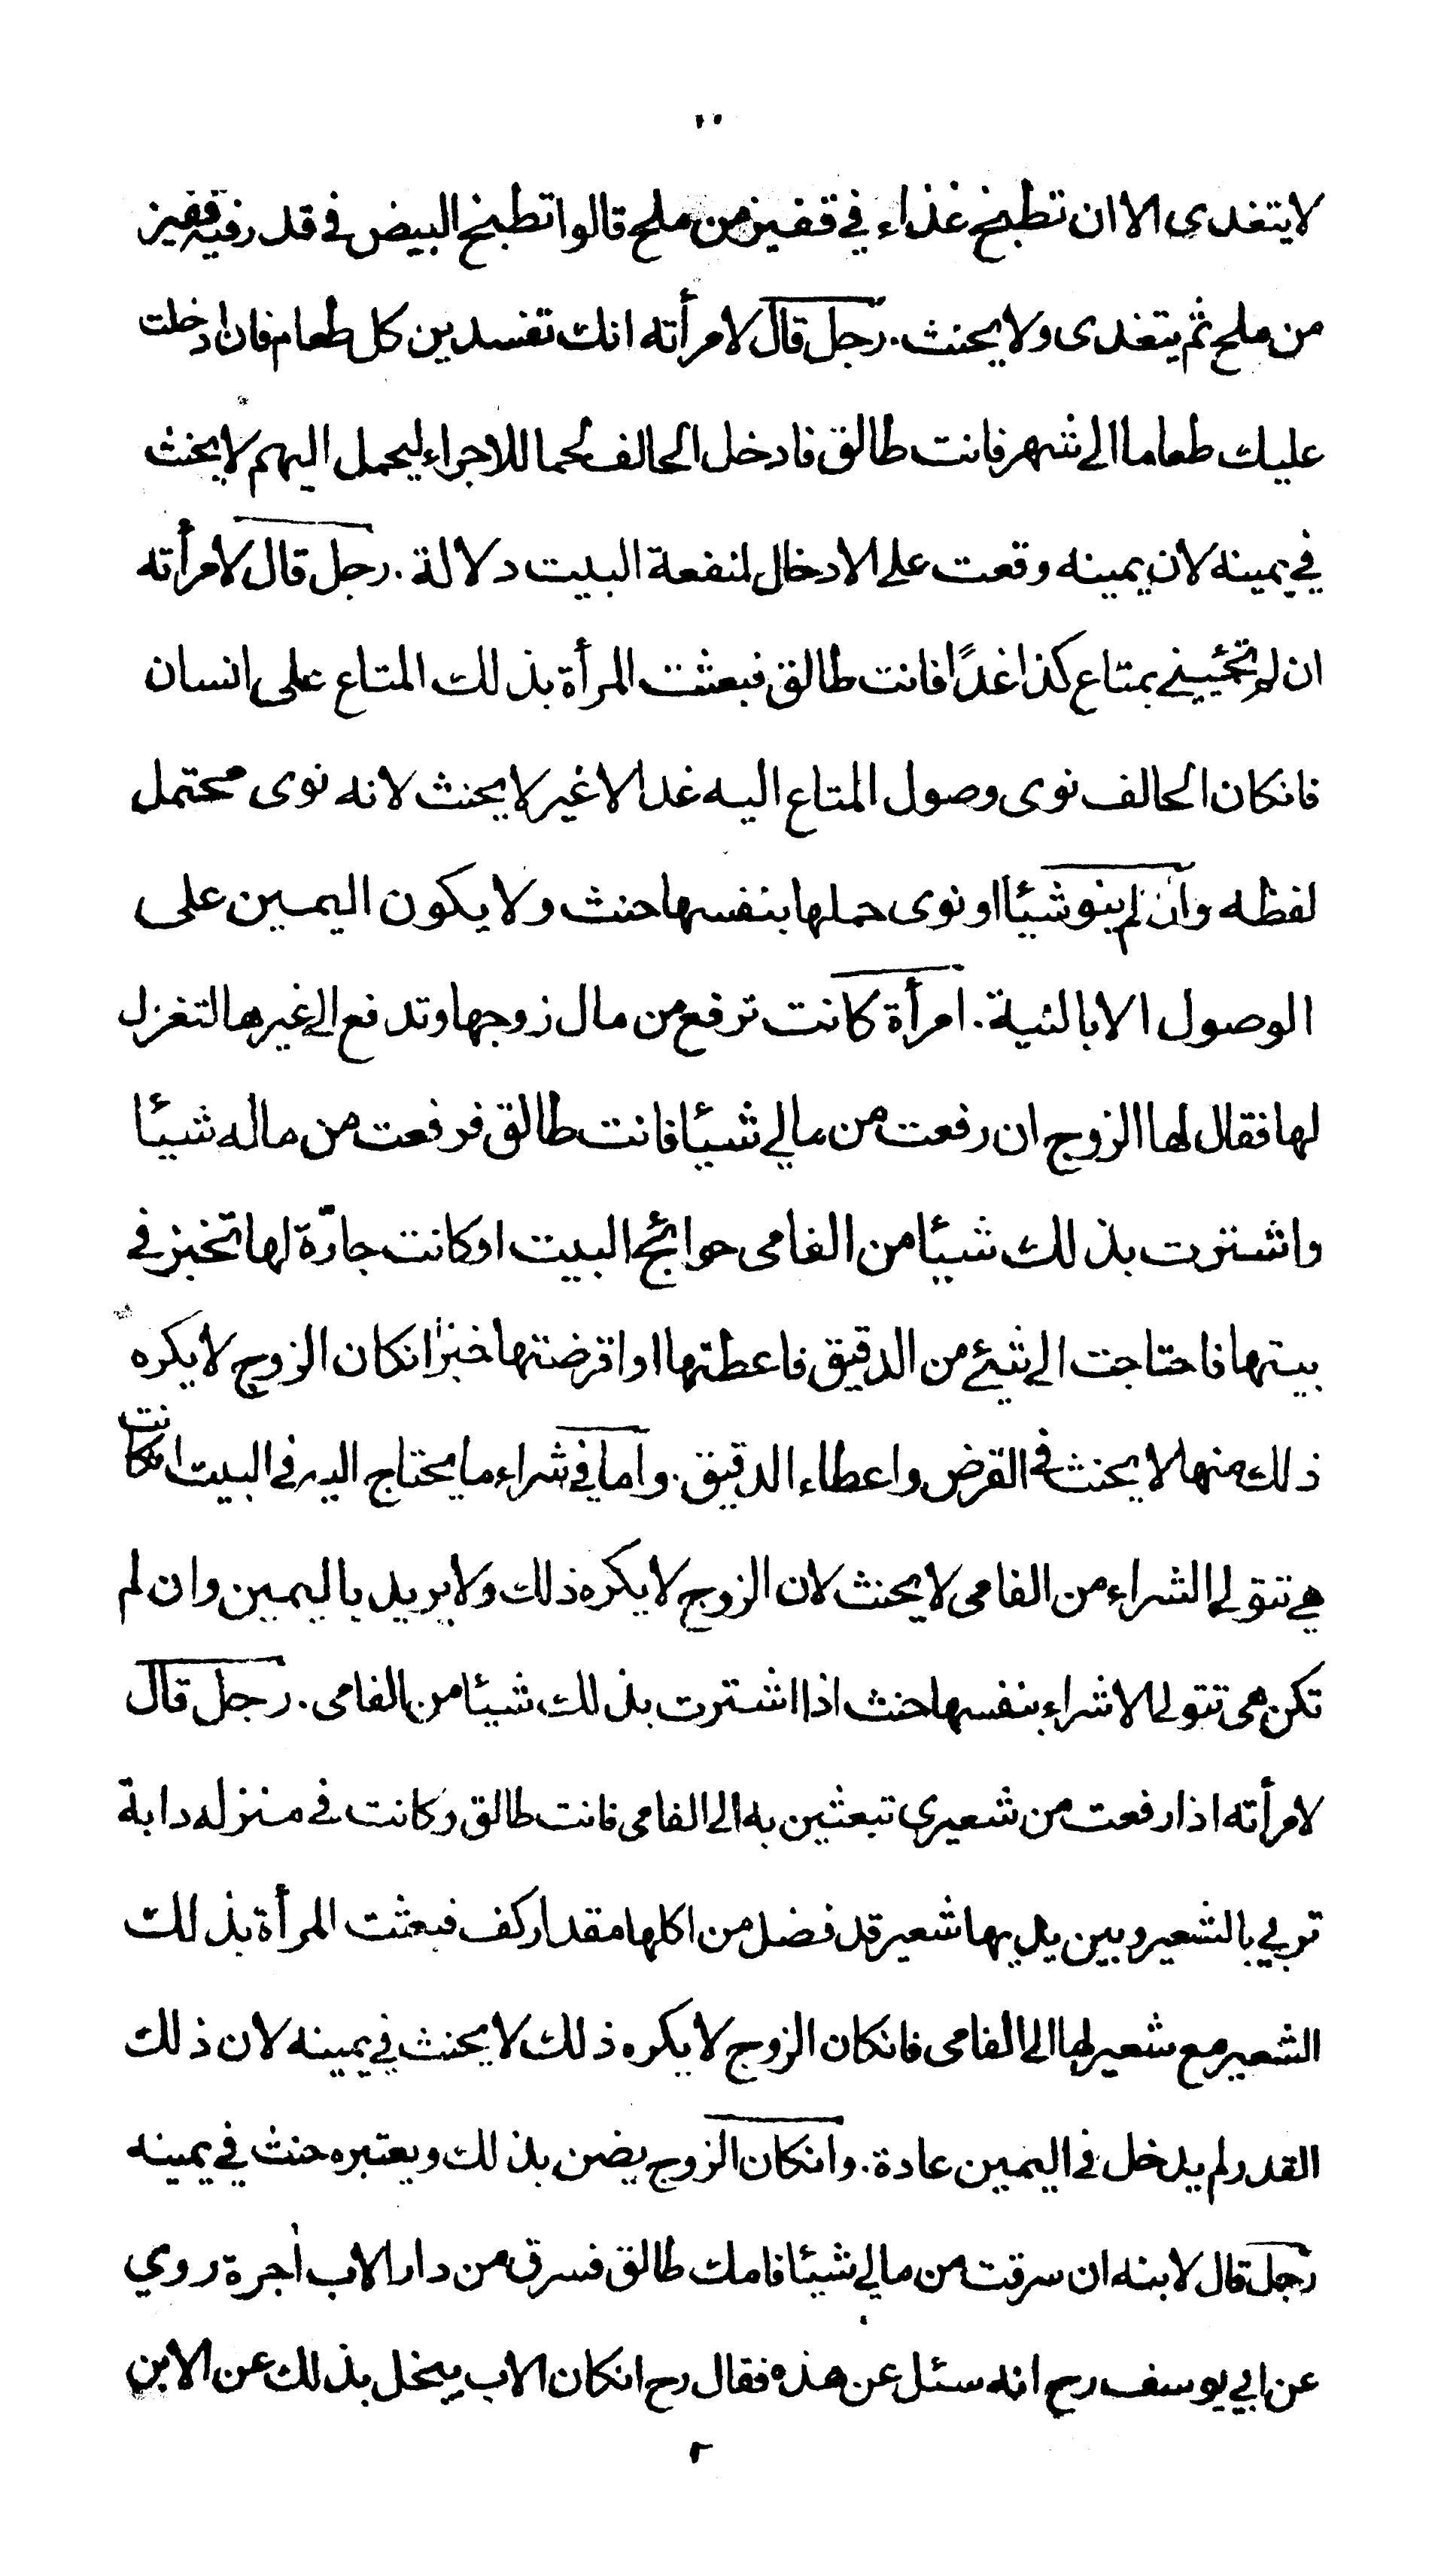 ١٠
لا يتغدى الا ان تطبخ غذاء في قفيز من ملح قالوا تطبخ البيض في قدر فيه قفيز
من ملح ثم يتغدى ولا يحنث . رجل قال لامرأته انك تفسدين كل طعام فان ادخلت
عليك طعاما الى شهر فانت طالق فادخل الحالف لحما للاجراء ليحمل اليهم لا يحنث
في يمينه لان يمينه وقعت على الادخال لمنفعة البيت دلالة . رجل قال لامرأته
ان لم تجيئيني بمتاع كذا غدًا فانت طالق فبعثت المرأة بذلك المتاع على انسان
فانكان الحالف نوى وصول المتاع اليه غدا لا غير لا يحنث لانه نوى محتمل
لفظه وان لم ينو شيئا او نوى حملها بنفسها حنث ولا يكون اليمين على
الوصول الا بالنية . امرأة كانت ترفع من مال زوجها وتدفع الى غيرها لتغزل
لها فقال لها الزوج ان رفعت من مالي شيئا فانت طالق فرفعت من ماله شيئا
واشترت بذلك شيئا من الفامى حوائج البيت او كانت جارّة لها تخبز في
بيتها فاحتاجت الى شيء من الدقيق فاعطتها او اقرضتها خبزا انكان الزوج لا يكره
ذلك منها لا يحنث في القرض واعطاء الدقيق . واما في شراء ما يحتاج اليه في البيت انكانت
هي تتولى الشراء من الفامى لا يحنث لان الزوج لا يكره ذلك ولا يريد باليمين وان لم
تكن هى تتولى الاشراء بنفسها حنث اذا اشترت بذلك شيئا من الفامى . رجل قال
لامرأته اذا رفعت من شعيرى تبعثين به الى الفامى فانت طالق وكانت في منزله دابة
تربي بالشعير وبين يديها شعير قد فضل من اكلها مقدار كف فبعثت المرأة بذلك
الشعير مع شعير لها الى الفامى فانكان الزوج لا يكره ذلك لا يحنث في يمينه لان ذلك
القدر لم يدخل في اليمين عادة . وانكان الزوج يضن بذلك ويعتبره حنث في يمينه
رجل قال لابنه ان سرقت من مالي شيئا فامك طالق فسرق من دار الاب اجرة روي
عن ابي يوسف رح انه سئل عن هذه فقال رح انكان الاب يبخل بذلك عن الابن
٢